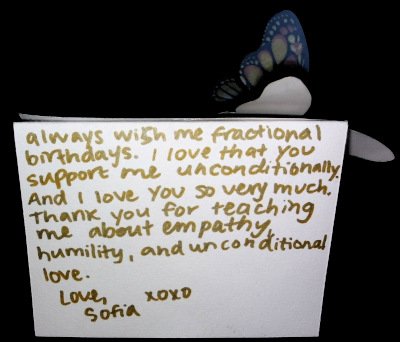 always wish me fractional
birthdays. I love that you
support me unconditionally.
And I love you so very much.
Thank you for teaching
me about empathy,
humility, and unconditional
love.
Love, xoxo
Sofia